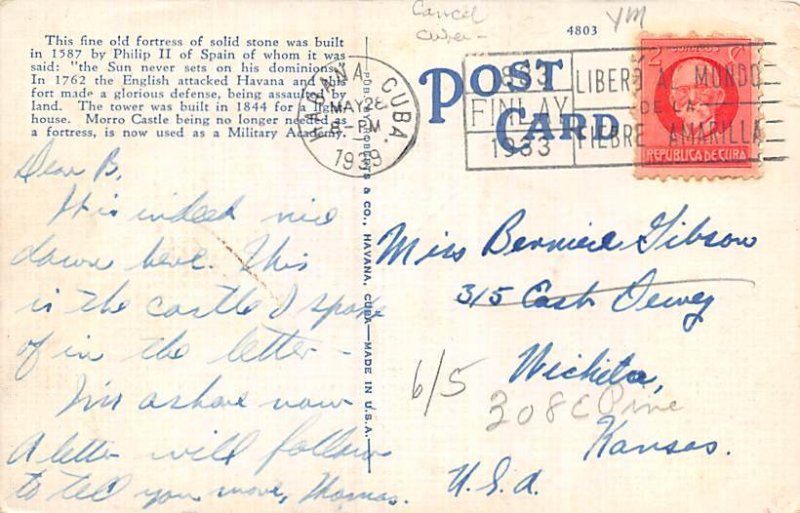 Cancel
Cuba-
4803 YM
This fine old fortress of solid stone was built
in 1587 by Philip II of Spain of whom it was
said: "the Sun never sets on his dominions."
In 1762 the English attacked Havana and this
fort made a glorious defense, being assaulted by
land. The tower was built in 1844 for a light
house. Morro Castle being no longer needed as
a fortress, is now used as a Military Academy.
HABANA, CUBA.
MAY 28
8-PM
1939
POST
CARD
1833
FINLAY
1933
LIBERÓ AL MUNDO
DE LA
FIEBRE AMARILLA
2 2
REPUBLICA DE CUBA
ROBERTS & CO., HAVANA, CUBA—MADE IN U.S.A.
Dear B,
It is indeed nice
down here. This
is the castle I spoke
of in the letter-
I'm ashore now
A letter will follow
to tell you more, Thomas.
Miss Berniece Gibson
315 East Dewey
Wichita,
6/5
208 E Pine
Kansas.
U.S.A.